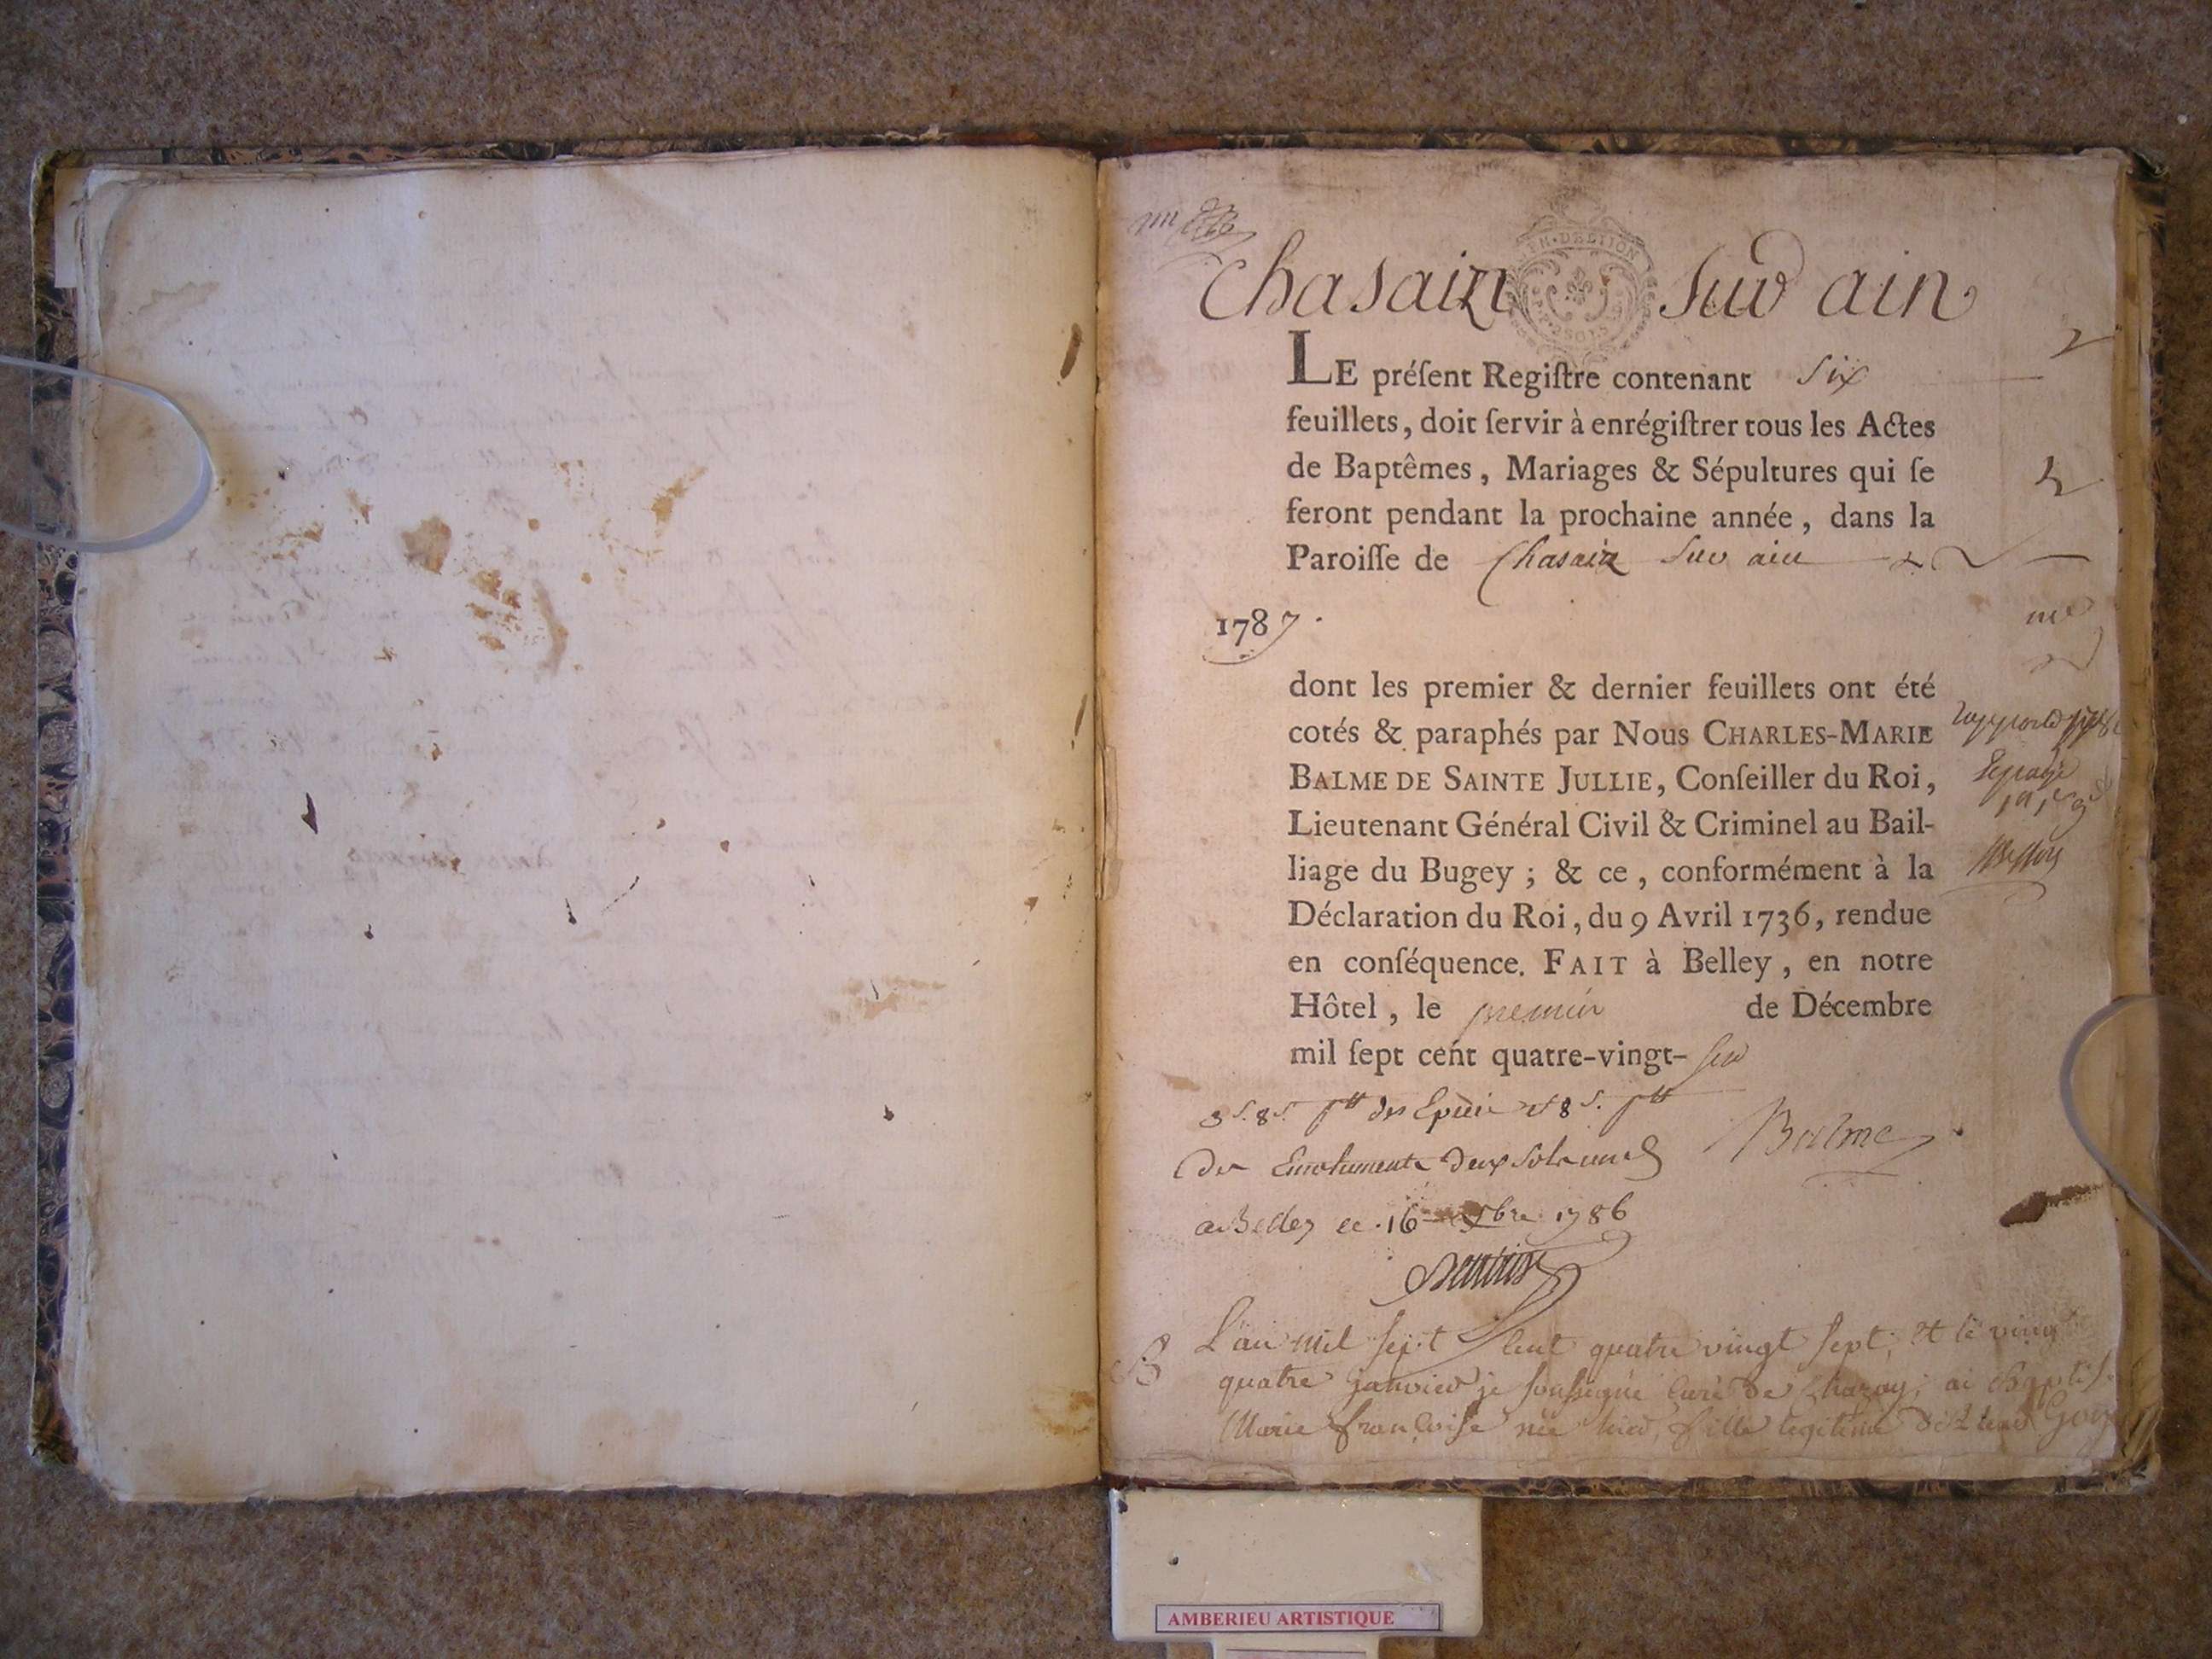 Chasain sur ain
EN. DE DIJON
LE préſent Regiſtre contenant six
feuillets, doit ſervir à enrégiſtrer tous les Actes
de Baptêmes, Mariages & Sépultures qui ſe
feront pendant la prochaine année, dans la
Paroiſſe de Chasaiz sur ain
1787.
dont les premier & dernier feuillets ont été
cotés & paraphés par Nous CHARLES-MARIE
BALME DE SAINTE JULLIE, Conſeiller du Roi,
Lieutenant Général Civil & Criminel au Bail-
liage du Bugey ; & ce, conformément à la
Déclaration du Roi, du 9 Avril 1736, rendue
en conſéquence. FAIT à Belley, en notre
Hôtel, le premier de Décembre
mil ſept cent quatre-vingt-six
Balme
a Belley ce 16 1786
L'an mil sept cent quatre vingt sept, et le vingt
quatre janvier je soussigné curé de Chazay, ai baptisé
Marie françoise née hier, fille legitime
AMBERIEU ARTISTIQUE